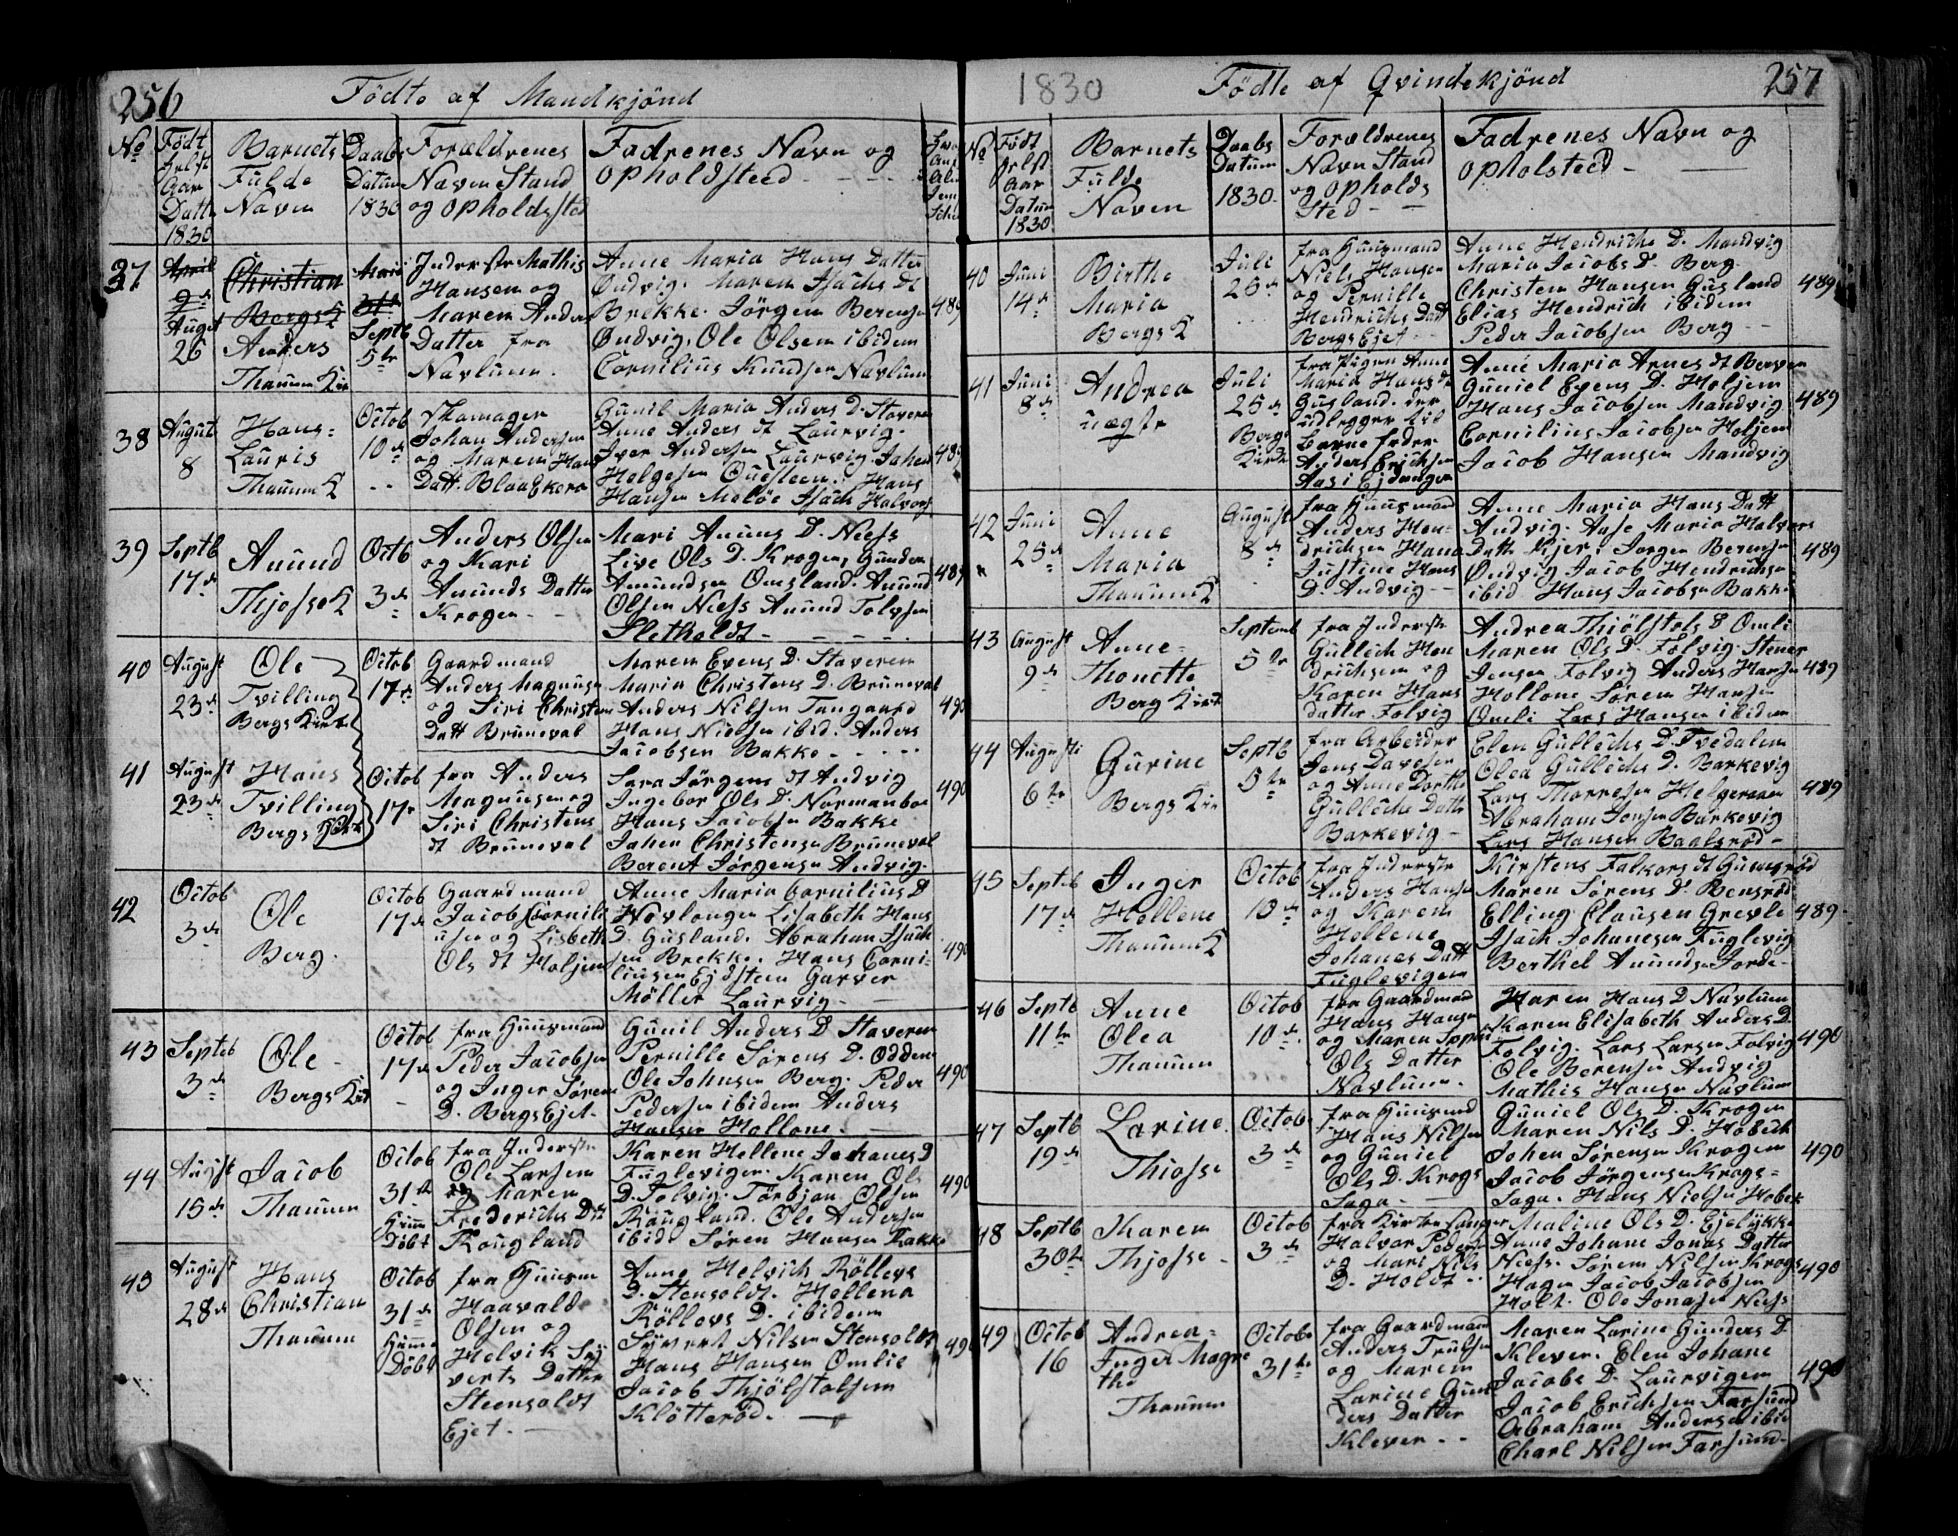 256
Födte af Mandkjönd
No
Födt
Aar
Datu
1830
Barnets
Fulde
Navn
Daabs
Datum
1830
Forældrenes
Navn Stand
og Opholdssted
Fadrenes Navn og
Opholdsteed
37
April
9de
August
26
Christian
Bergs K
Anders
Thanum Kir
Maii
31te
Septb
5te
Inderste Mathis
Hansen og
Maren Anders
Datter fra
Navlum.
Anne Maria Hans Datter
Øndvig. Maren Isachs Dt
Brekke. Jörgen Berensen
Øndvig, Ole Olsen ibidem
Cornilius Knudsen Navlum
489
38
August
8
Hans
Lauris
Thanum K
Octob
10de
Skomager
Johan Andersen
og Maren Hans
Datt. Blaaskera
Gunil Maria Anders D. Stavern
Anne Anders dt Laurvig.
Iver Andersen Laurvig. Johen
Helgesen Questeen. Hans
Hansen Melöe Isach Halvors
489
39
Septb
17de
Anund
Thjosse K
Octb
3de
Anders Olsen
og Kari
Anunds Datter
Krogen
Mari Anuns D.Ness
Live Ols D. Krogen, Gunder
Amundsen Omsland. Anund
Olsen Ness Anund Tolvsen
Sletholdt
489
40
August
23de
Ole
Tvilling
Bergs Kirke
Octob
17de
Gaardmand
Anders Magnusen
og Siri Christens
Datt Bruneval
Maren Evens D. Staveren
Maria Christens D. Bruneval
Anders Nilsen Tangaard
Hans Nielsen ibid. Anders
Jacobsen Bakke
490
41
August
23de
Hans
Tvilling
Bergs Kirke
Octob
17de
fra Anders
Magnusen og
Siri Christens
dt Bruneval
Sara Jörgens dt Andvig
Ingebor Ols D. Normanboe
Hans Jacobsen Bakke
Johen Christensen Bruneval
Berent Jörgensen Andvig.
490
42
Octob
3de
Ole
Berg.
Octob
17de
Gaardmand
Jacob Cornili
usen og Lisbeth
Ols dt Holjem
Anne Maria Cornilius D
Novlangen Lisabeth Hans
D. Gusland. Abraham Isach
sen Brekke. Hans Corni-
liusen Ejdsteen Garver
Möller Laurvig.
490
43
Septeb
3de
Ole
Bergs Kirk
Octob
17de
fra Huusmand
Peder Jacobsen
og Inger Sörens
D. Bergs Ejet.
Gunil Anders D Staveren
Pernille Sörens D. Odden
Ole Johnsen Berg. Peder
Pedersen ibidem Anders
Hansen Hollane.
490
44
August
15de
Jacob
Thanum
Octob
31te
Hiem
Döbt
fra Inderste
Ole Larsen
og Maren
Frederichs Dtt
Rougland
Karen Hellene Johanes D
Fuglevigen. Karen Ols
D. Folvig. Torbjön Olsen
Rougland. Ole Andersen
ibid. Sören Hansen Bakke
490
45
August
28de
Hans
Christian
Thanum
Octob
31te
Hiem
Döbt
fra Huusm
Haavald
Olsen og
Helvik Sy
verts Datter
Steensoldt
Ejet.
Anne Helvich Röllevs
D. Stensoldt. Hellena
Röllevs D. ibidem
Syvert Nilsen Stensoldt
Hans Hansen Omlie
Jacob Thjölstolsen
Klötteröd.
490
1830
Födte af Qvindekjönd
257
No
Födt
Aar
Datum
1830
Barnets
Fulde
Navn
Daabs
Datum
1830
Forældrenes
Navn Stand
og Opholds
Sted
Fadrenes Navn og
Opholsteed
40
Juni
14de
Birthe
Maria
Bergs K
Juli
25de
fra Huusmand
Niels Hansen
og Pernille
Hendrichs Datt
Bergs Ejet
Anne Hendrichs D. Mandvig
Maria Jacobs D. Berg
Christen Hansen Gusland
Elias Hendrich ibidem
Peder Jacobsen Berg
489
41
Juni
8de
Andrea
uægte
Juli
25de
Bergs
Kirke
fra Pigen Anne
Maria Hans dt
Gusland. der
udlegger til
Barne fader
Anders Erichsen
Aas i Ejdanger
Anne Maria Arnes dt Berven
Guniel Evens D. Holjem
Hans Jacobsen Mandvig
Cornilius Jacobsen Holjem
Jacob Hansen Mandvig
489
42
Juni
25de
Anne
Maria
Thanum K
August
8de
fra Huusmand
Anders Hen-
drichsen Hana
Justine Hans
D. Andvig
Anne Maria Hans Datt
Andvig. Aase Maria Halvors
Datt. Kjer. Jörgen Berensen
Øndvig Jacob Hendrichsen
ibid Hans Jacobsen Bakke
489
43
August
9de
Anne
Thonette
Berg Kirk
Septemb
5te
fra Inderste
Gullich Hen
drichsen og
Karen Hans
datter Folvig
Andrea Thjölstols D Omli
Maren Ols D. Folvig. Stener
Jensen Folvig Anders Hansen
Hollane Sören Hansen
Omli Lars Hansen ibidem
489
44
August
6te
Gurine
Bergs Kir
Septb
5te
fra Arbeider
Jens Davesen
og Anne Dorthe
Gullichs Datter
Barkevig
Elen Gullichs D. Tvedalen
Olea Gullichs D. Barkevig
Lars Thorresen Helgeraaen
Abraham Jensen Barkevig
Lars Hansen Baatsröd
489
45
Septeb
17de
Inger
Hellene
Thanum K
Octob
10de
fra Inderste
Anders Hansen
og Karen
Hellene
Johanes Datt
Fuglevigen
Kirstens Falkors dt Gumsröd
Maren Sörens D. Bensröd
Elling Clausen Grevle
Isach Johanesen Fuglevig
Berthel Anundsen Jorde
489
46
Septb
11te
Anne
Olea
Thanum
Octob
10de
fra Gaardmand
Hans Hansen
og Maren Sophia
Ols Datter
Navlum.
Karen Hans D Navlum
Karen Elisabeth Anders D
Folvig. Lars Larsen Folvig
Ole Berensen Andvig
Mathis Hansen Navlum
490
47
Septb
19de
Larine
Thiosse
Octob
3de
fra Huusmd
Hans Nilsen
og Guniel
Ols D. Krogs
Saga
Guniel Ols D. Krogen
Maren Nils D. Hobech
Johen Sörensen Krogen
Jacob Jörgensen Krogs
Saga. Hans Nielsen Hobek
490
48
Septb
30te
Karen
Thjosse
Octob
3de
fra Kirkesanger
Halvor Peders
og Mari Nils
D. Holdt
Maline Ols D. Ejelykke
Anne Johane Jonas Datter
Ness. Sören Nilsen Krogs
Hagen Jacob Jacobsen
Holt. Ole Jonasen Ness
490
49
Octob
16
Andrea
Inger Magre
the
Thanum
Octob
31te
fra Gaardmand
Anders Trulsen
og Maren
Larine Gun
ders Datter
Kleven
Maren Larine Gunders D
Kleven. Elen Johane
Jacobs D. Laurvigen
Jacob Erichsen Farsund
Abraham Andersen ibid
Charl Nilsen Farsund
490